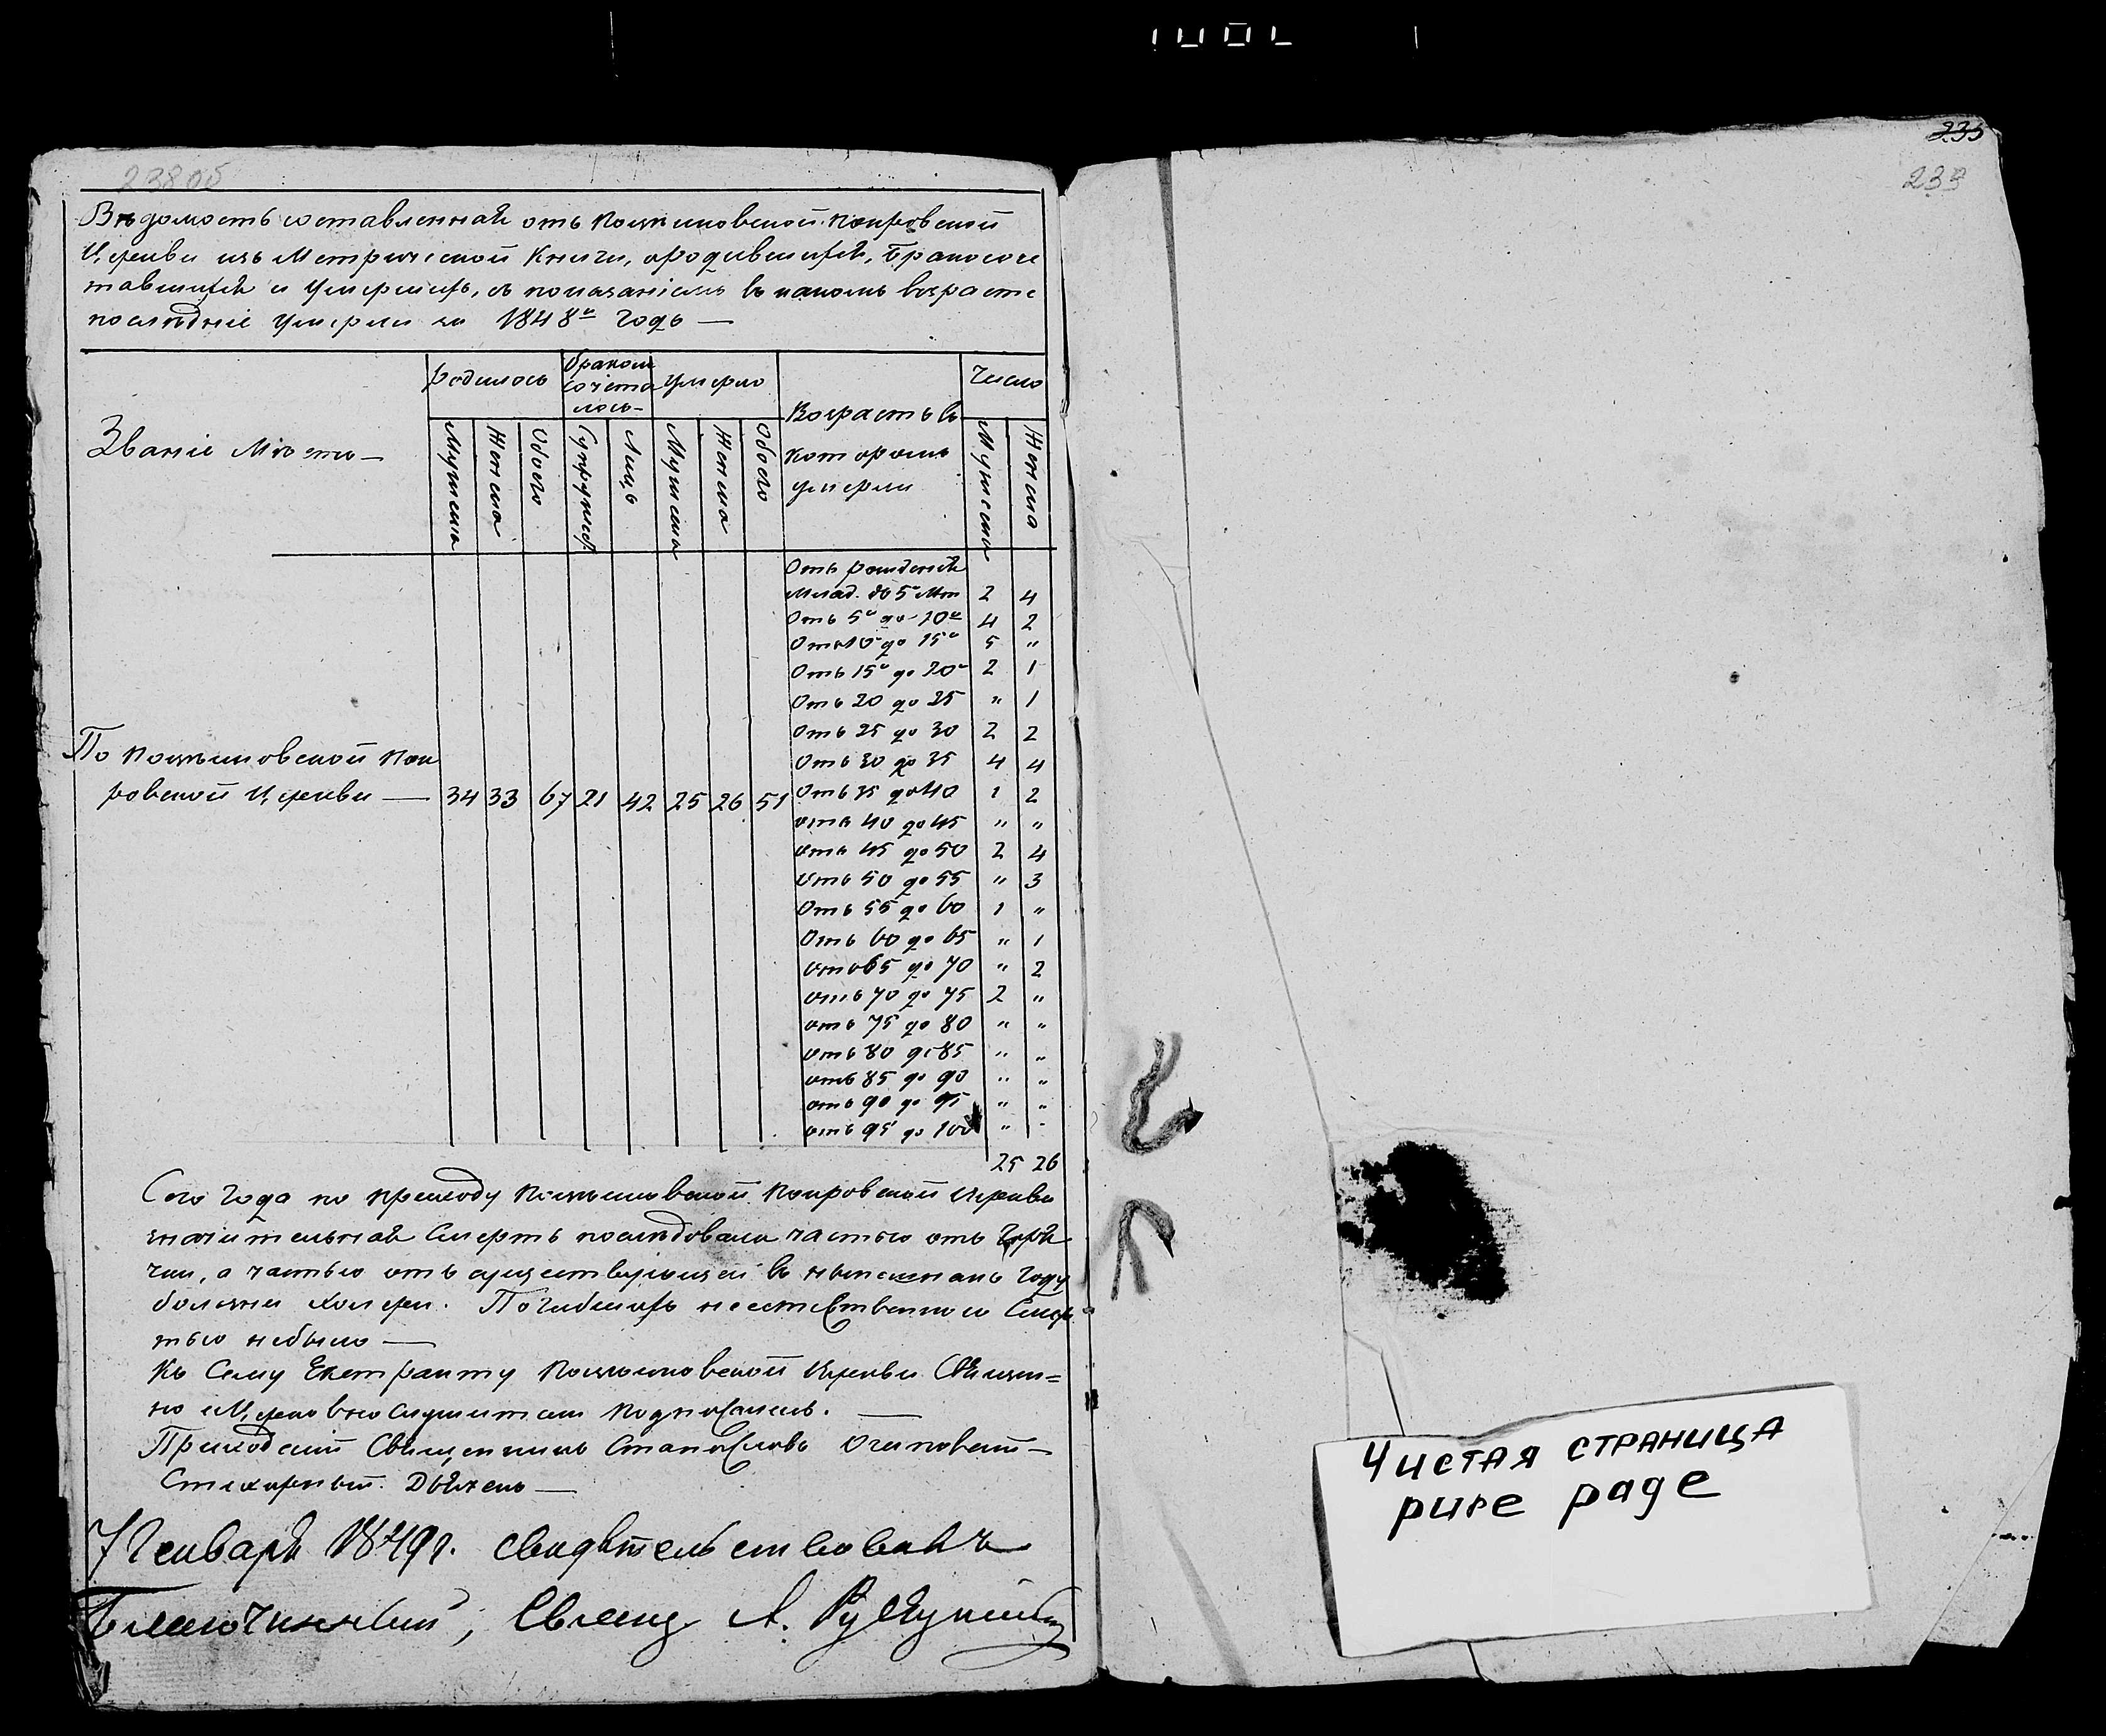 238об
Вѣдомость составленная отъ Кошиловской Покровской
Церкви изъ Метрической Книги, о родившихся, Бракосоче
тавшихся и Умершихъ, съ показаніемъ въ какомъ возрастѣ
послѣдніе Умерли за 1848й годъ —
Званіе Мѣста —
родилось
бракомъ сочета лось —
умерло
Возрастъ въ которомъ умерли
Число
Мужеска
Женска
Обоего
Супружес.
Лицъ
Мужеска
Женска
Обоего
Мужеска
Женска
Отъ рожденія
Млад. до 5и лѣт 2 4
Отъ 5и до 10и 4 2
Отъ 10 до 15и 5 "
Отъ 15и до 20и 2 1
Отъ 20 до 25 " 1
Отъ 25 до 30 2 2
Отъ 30 до 35 4 4
По Кошиловской Пок
ровской Церкви — 34 33 67 21 42 25 26 51
Отъ 35 до 40 1 2
отъ 40 до 45 " "
отъ 45 до 50 2 4
Отъ 50 до 55 " 3
Отъ 55 до 60 1 "
Отъ 60 до 65 " 1
отъ 65 до 70 " 2
отъ 70 до 75 2 "
отъ 75 до 80 " "
отъ 80 до 85 " "
отъ 85 до 90 " "
отъ 90 до 95 " "
отъ 95 до 100 " "
25 26
Сего Года по приходу Покровской Церкви
значительная Смерть послѣдовала частью отъ
а частью отъ существующей въ нынешнемъ Году
болезни холеры. Погибшихъ неестественною Смер
тью небыло —
Къ Сему Екстракту Церкви Священ=
но и Церковнослужители Подписались. —
Приходскій Священникъ Станиславъ —
Стихарный Дьячекъ —
7 Генваря 1849г. свидѣтельствовалъ
Благочинный, Свящ. А.
235
239
Чистая страница
pure page